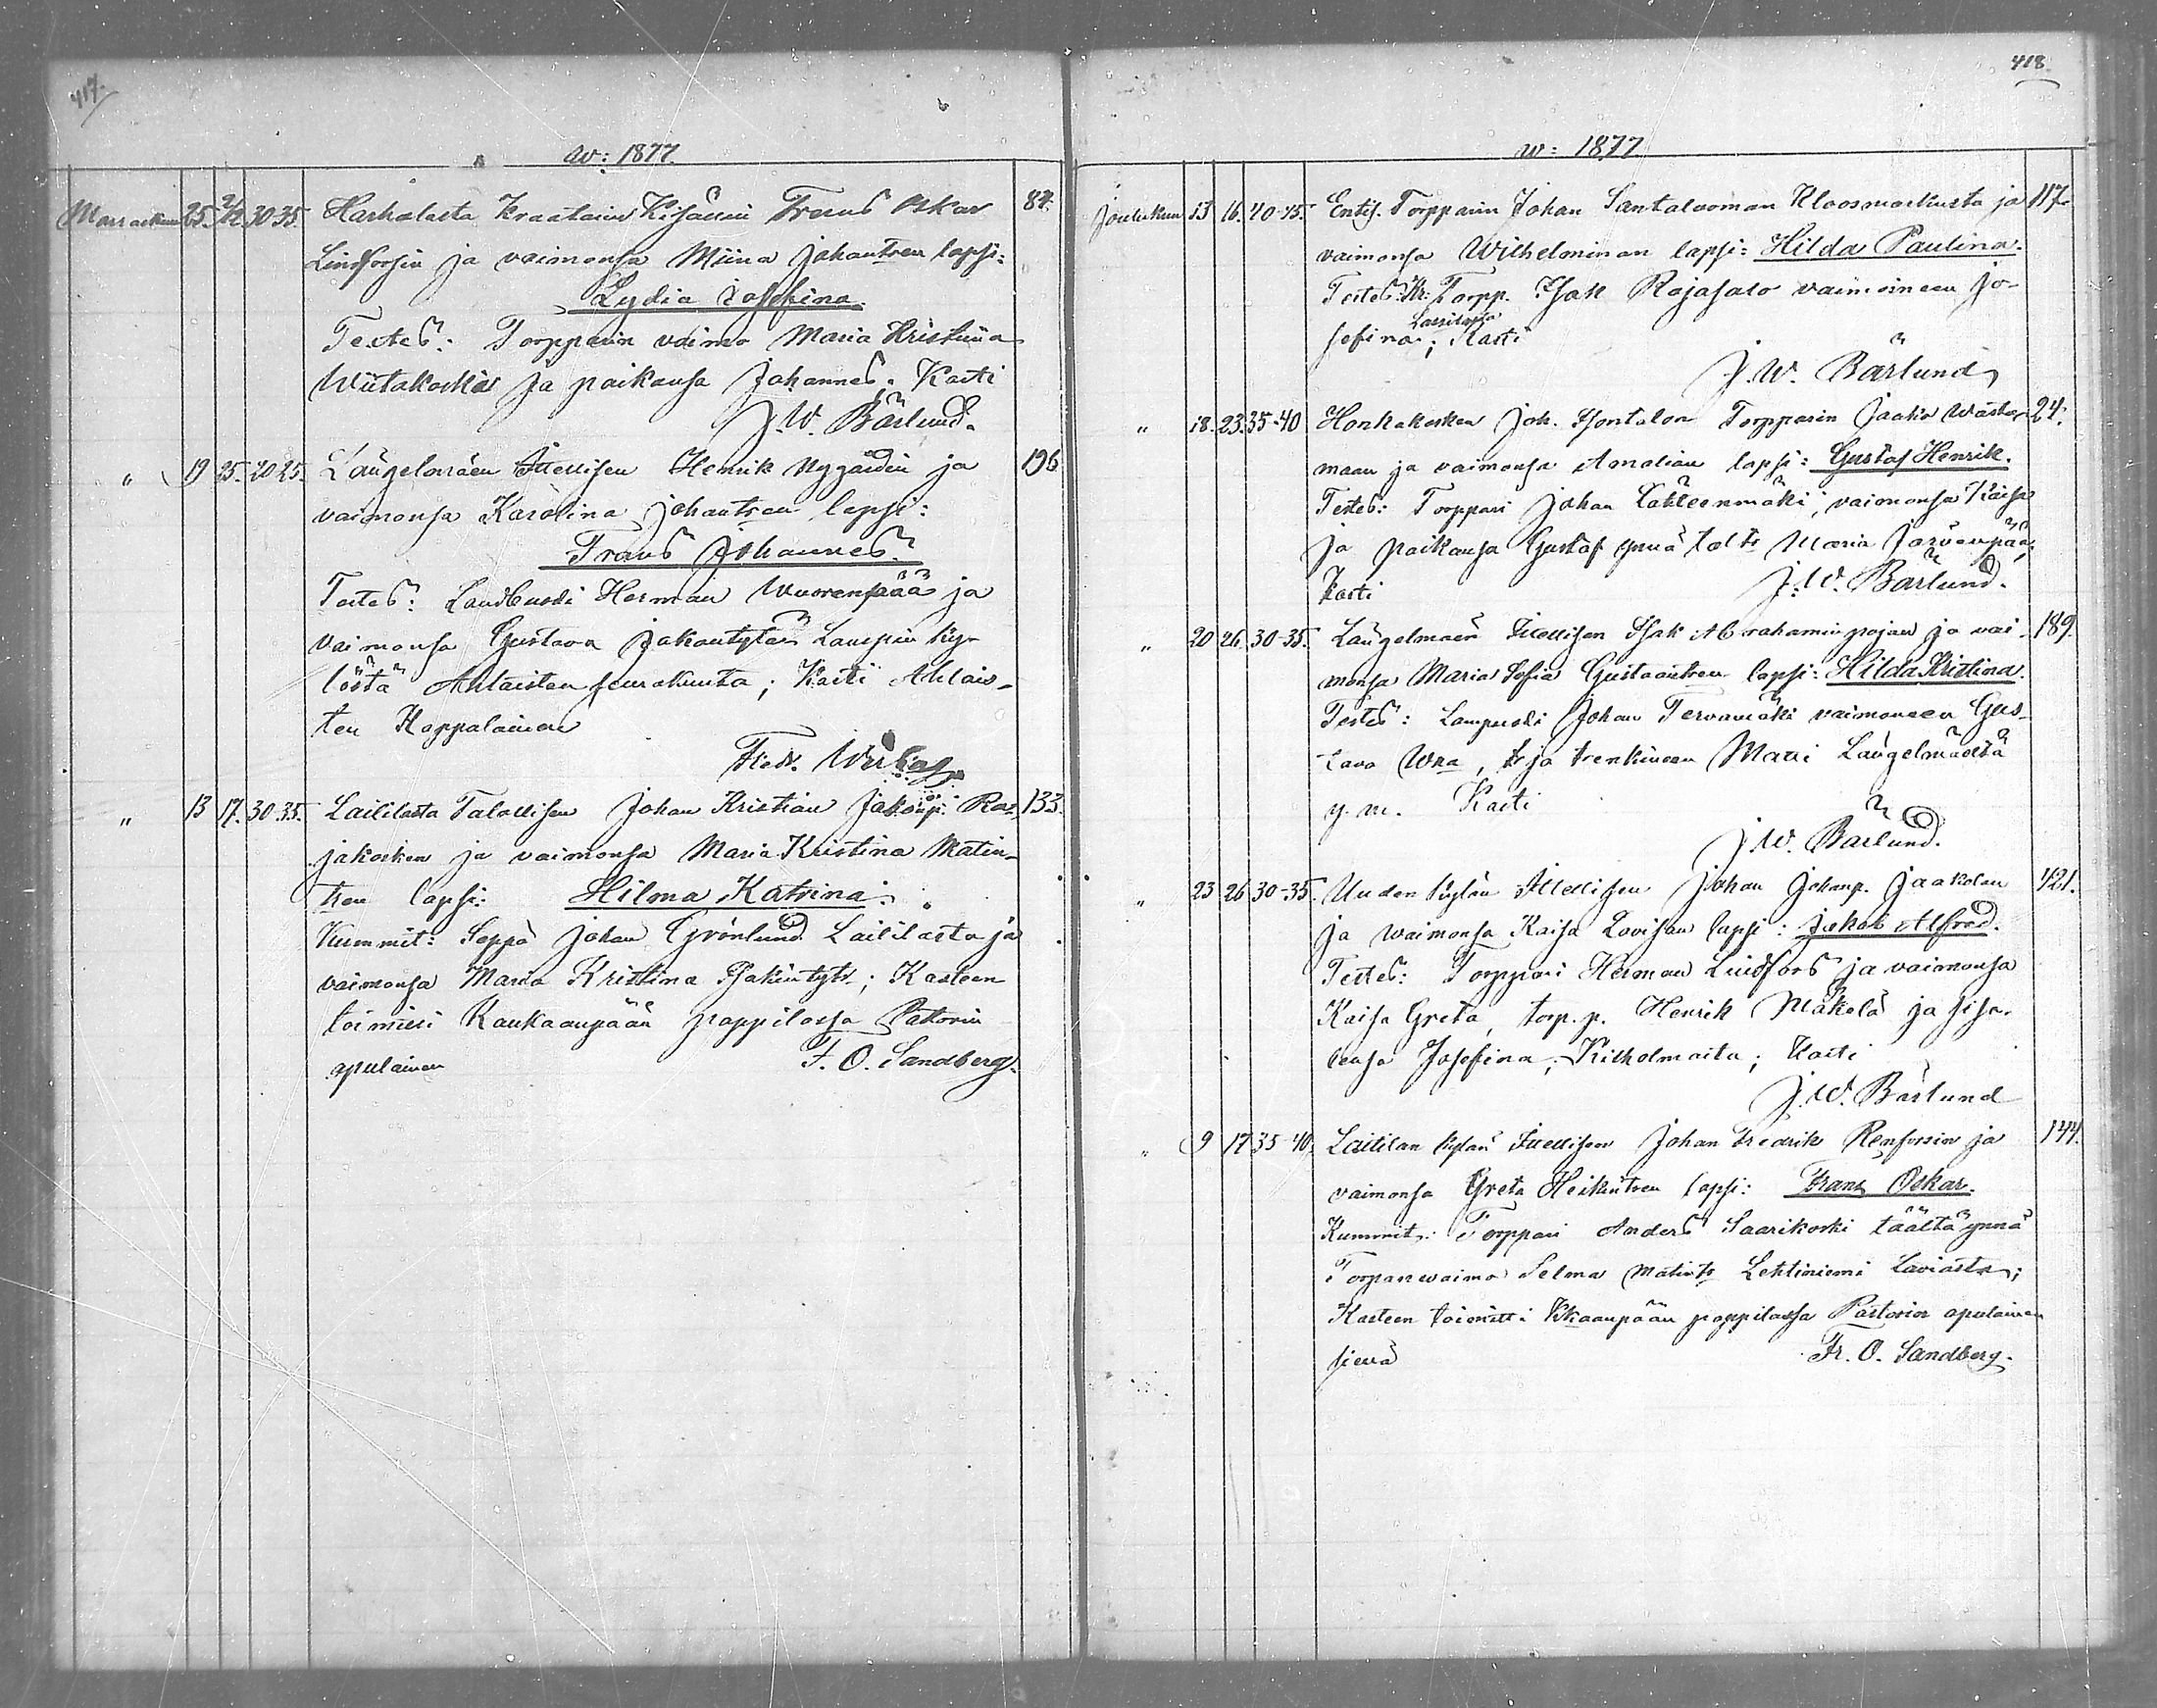 417.
w: 1877.
Marraskuu 25. 2/12 30-35. Harhalasta Kraatarin Kisällin Frans Oskar 84.
Lindforsin ja vaimonsa Miina Johantren lapsi:
Lydia Josefina.
Testes: Torpparin vaimo Maria Kristiina
Wiitakoskis ja poikansa Johannes; Kasti
J. W. Bärlund.
" 19 25. 20-25. Längelmäen Itsellisen Henrik Nygårdin ja 196
vaimonsa Karolina Johantren lapsi:
Frans Johannes.
Testes: Landbuodi Herman Wuorenpää ja
vaimonsa Gustava Jakontytär Lampin ky-
löstä Ahlaisten seurakunta; Kasti Ahlais-
ten Kappalainen
Fredr.
" 13 17. 30-35. Laililasta Talollisen Johan Kristian Jakobip. Ra- 133.
jakosken ja vaimonsa Maria Kristina Matin-
tren lapsi: Hilma Katrina.
Kummit: Seppä Johan Grönlund Laililasta ja
vaimonsa Maria Kristina Isakintytr; Kasteen
toimitti Kankaanpään pappilassa Pastorin
apulainen F. O. Sandberg.
418.
w: 1877
Joulukuu 13 16. 40-45. Entis. Torpparin Johan Santaluoman Kloosmarkusta ja 117.
vaimonsa Wilhelminan lapsi: Hilda Paulina.
Testes: Kr: Torpp. Isak Rajasalo vaimoineen Jo-
Lassilasta
sefina; Kasti
J. W. Bärlund
" 18. 23. 35-40 Honkakosken Joh. Torpparin Jaakko Wäster- 24.
maan ja vaimonsa Amalian lapsi: Gustaf Henrik.
Testes: Torppari Johan Lähteenmäki, vaimonsa Kaisa
ja poikansa Gustaf ynnä tal. tr Maria Järvenpää,
Kasti J. W. Bärlund.
" 20 26. 30-35. Längelmäen Itsellisen Isak Abrahaminpojan ja vai- 189.
monsa Maria Sofia Gustaantren lapsi: Hilda Kristina.
Testes: Lampuodi Johan Tervamäki vaimoneen Gus-
tava Wna, ja trenkineen Matti Längelmäeltä
y. m. Kasti
J. W. Bärlund.
" 23 26 30-35. Uuden kylän Itsellisen Johan Johanp. Jaakolan 121.
ja waimonsa Kaisa Lovisan lapsi: Jakob Alfred.
Testes: Torppari Herman Lindfors ja vaimonsa
Kaisa Greta, torp. p. Henrik Mäkelä ja sisa-
rensa Josefina; Kilholmaita; Kasti
J. W. Bärlund
" 9 17 35-40. Laitilan kylän Itsellisen Johan Fredrik Renforsin ja 144.
vaimonsa Greta Heikintren lapsi: Frans Oskar.
Kummit: Torppari Anders Saarikoski täältä ynnä
Torparinwaimo Selma Matintr Lehtiniemi Laviasta;
Kasteen toimitti Kkaanpään pappilassa Pastorin apulainen
siellä Fr. O. Sandberg.